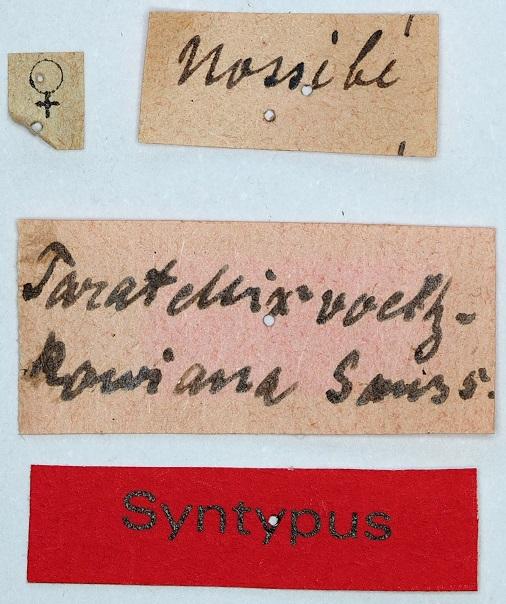 ♀
Nossibé
Paratelluix voeltz-
kowiana Sauss.
Syntypus